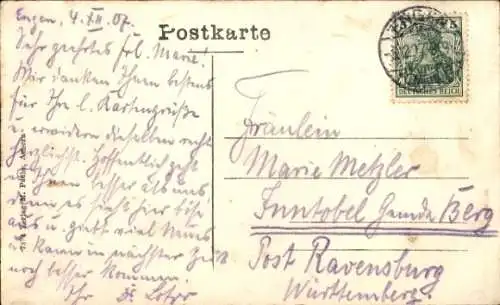 Engen, 4. XII. 07.
Postkarte
Sehr geehrtes Frl. Marie!
Wir danken Ihnen bestens
für Ihre l. Kartengrüße
u. erwidern dieselben recht
herzlichst. Hoffentlich geht
es Ihnen besser als uns,
denn es sieht hier böse
aus u. giebt viel
u. kann in nächster Zeit
noch besser kommen.
Ihr
ENGEN
DEUTSCHES REICH
Fräulein
Marie Metzler
Inntobel Gemde Berg
Post Ravensburg
Württemberg